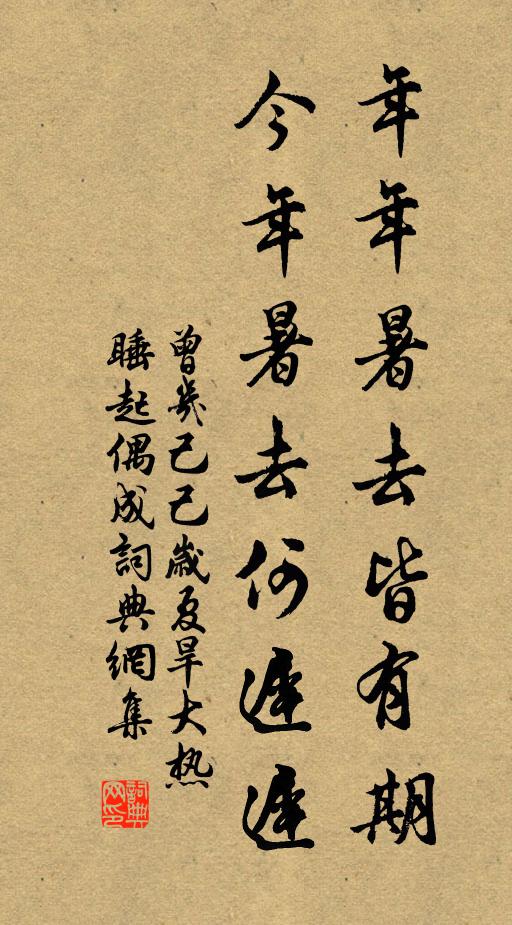 年年暑去皆有期
今年暑去何遲遲
曾幾己巳歲夏旱大热
睡起偶成詞典網集
詞典网印